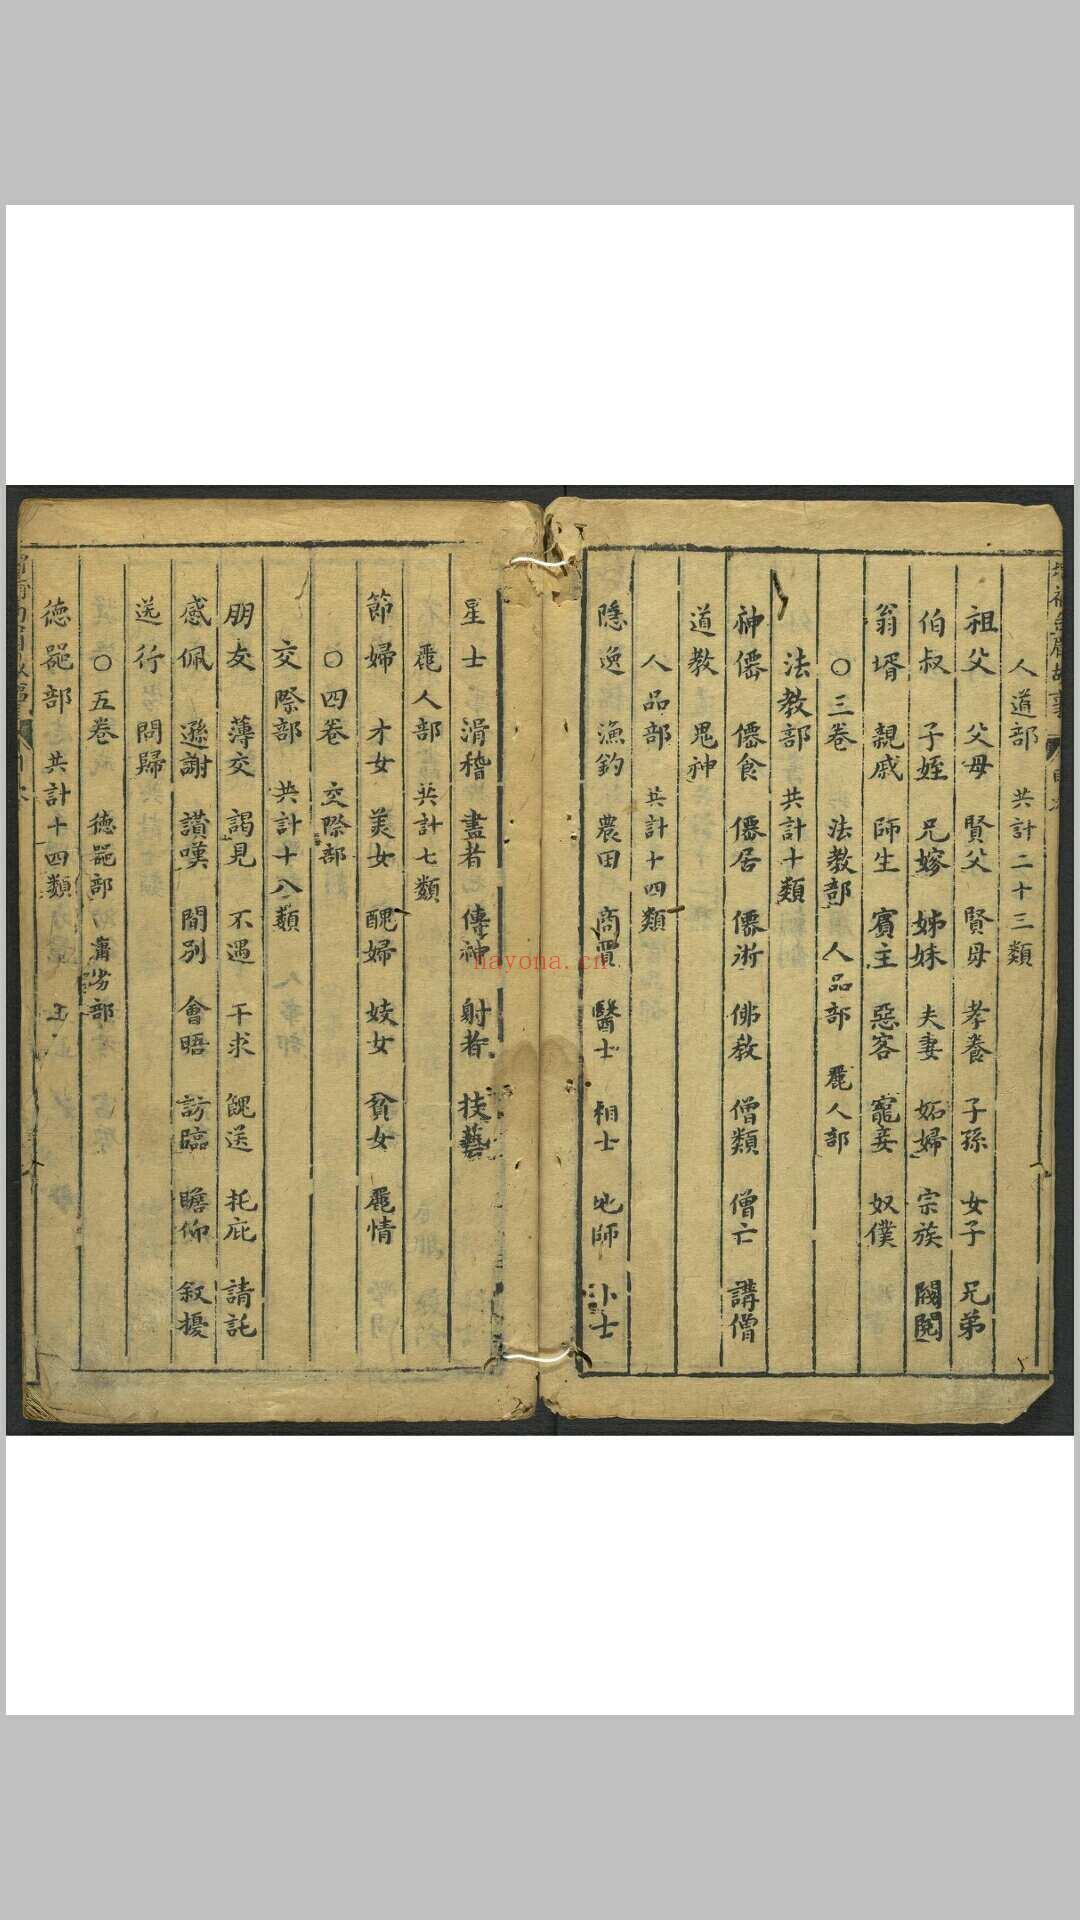 人道部　共計二十三類
祖父　父母　賢父　賢母　孝養　子孫　女子　兄弟
伯叔　子姪　兄嫁　姊妹　夫妻　妬婦　宗族　閥閱
翁壻　親戚　師生　賓主　惡客　寵妾　奴僕
〇三卷　法教部　人品部　麗人部
法教部　共計十類
神僊　僊食　僊居　僊術　佛教　僧類　僧亡　講僧
道教　鬼神
人品部　共計十四類
隱逸　漁釣　農田　商賈　醫士　相士　地師　卜士
星士　滑稽　畫者　傳神　射者　技藝
麗人部　共計七類
節婦　才女　美女　醜婦　妓女　貧女　麗情
〇四卷　交際部
交際部　共計十八類
朋友　薄交　謁見　不遇　干求　餽送　托庇　請託
感佩　遜謝　讚嘆　間別　會晤　訪臨　瞻仰　叙擾
送行　問歸
〇五卷　德器部
德器部　共計十四類
hayona.cn